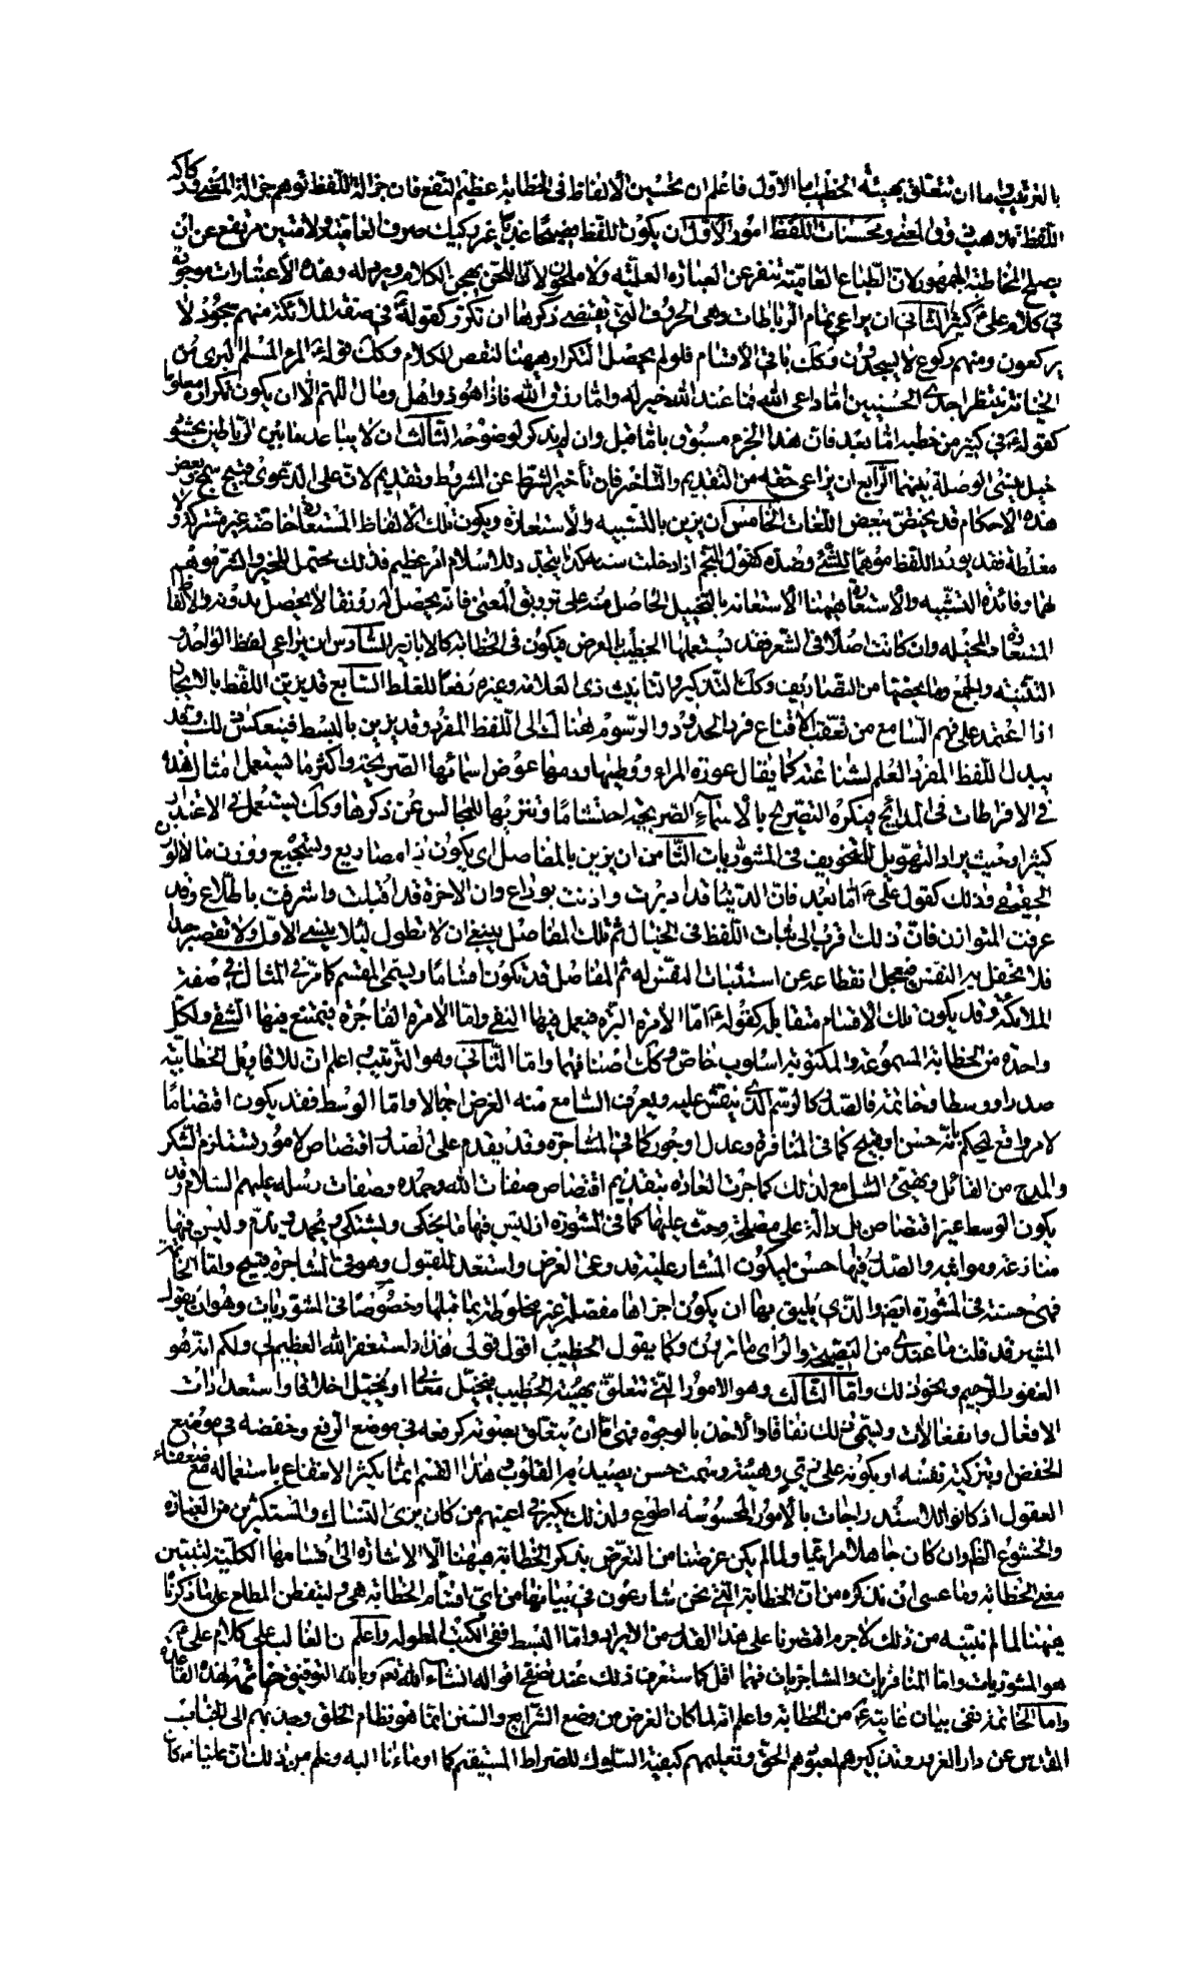 بالترتيب واما ان تتعلق بهيئة الخطيب اما الاول فاعلم ان تحسين الالفاظ فى الخطابة عظيم النفع فان جزالة اللفظ توهم جزالة المعنى وركاكة
اللفظ تذهب فى ومحسنات اللفظ امور الاول ان يكون اللفظ فصيحا عذبا غير ركيك صرف العامية ولا متين مرتفع عن ان
يصلح لمخاطبة الجمهور لان الطباع العامية تنفر عن العبارة العلمية ولا ملحون لان اللحن يهجن الكلام ويرذله وهذه الاعتبارات موجودة
في كلام علىّ ع كثيرا الثانى ان يراعى تمام الرباطات وهى الحروف التى يقتضى ذكرها ان تكرر كقوله ع في صفة الملائكة منهم سجود لا
يركعون ومنهم ركوع لا يسجدون وكك باقى الاقسام فلو لم يحصل التكرار ههنا لنقص الكلام وكك قوله ع المرء المسلم البرى من
الخيانة ينتظر احدى الحسنيين اما داعى الله فما عند الله خير له واما رزق الله فاذا هو ذو اهل ومال اللهم الا ان يكون تكراره معلوما
كقوله ع في كثير من خطبه اما بعد فان هذا الجزء مسبوق باما قبل وان لم يذكر لوضوحه الثالث ان لا يباعد ما بين الرباطين بحشو
دخيل ينسى الوصلة بينهما الرابع ان يراعى حقه من التقديم والتأخير فان تأخير الشرط عن المشروط وتقديم لان على الدعوى قبيح سمج وبعض
هذه الاحكام قد يختص ببعض اللغات الخامس ان يزين بالتشبيه والاستعارة ويكون تلك الالفاظ المستعارة خاصة غير مشتركة ولا
مغلطة فقد يورد اللفظ موهما للشئ وضده كقول المنجم اذا دخلت سنة كذا يتجدد للاسلام امر عظيم فذلك محتمل للخير والشر موهم
لهما وفائدة التشبيه والاستعارة ههنا الاستعانة بالتخييل الحاصل منه على ترويق المعنى فانه يحصل له رونقا لا يحصل بدونه والالفاظ
المستعارة والمخيلة وان كانت اصلا فى الشعر فقد يستعملها الخطيب بالعرض فيكون فى الخطابة كالابازير السادس ان يراعى لفظ الواحد
التثنية والجمع وما يخصها من التصاريف وكك التذكير والتانيث ذى العلامة وغيره دفعا للغلط السابع قد يزين اللفظ بالايجاز
اذا اعتمد على فهم السامع من تعقب الاقناع فرد الحدود والرسوم هناك الى اللفظ المفرد وقد يزين بالبسط فينعكس ذلك وقد
يبدل اللفظ المفرد العلم لشناعته كما يقال عورة المراة ووطيها ودمها عوض اسمائها الصريحة واكثر ما يستعمل امثال هذه
في الافراطات فى المدايح فيكره التصريح بالاسماء الصريحة احتشاما وتنزيها للمجالس عن ذكرها وكك يستعمل فى الاعتذار
كثيرا وحيث يراد التهويل للتخويف فى المشوريات الثامن ان يزين بالمفاصل اى يكون ذا مصاريع وتسجيع ووزن ما لا الوزن
الحقيقى وذلك كقول على ع اما بعد فان الدنيا قد ادبرت واذنت بوداع وان الاخرة قد اقبلت واشرفت باطلاع وقد
عرفت المتوازن فان ذلك اقرب الى ثبات اللفظ فى الخيال ثم تلك المفاصل ينبغى ان لا تطول لئلا ينسى الاول ولا تقصر جدا
فلا تحفل به النفس فيعجل انقطاعه عن استثبات النفس له ثم المفاصل قد تكون اقساما ويسمى المقسم كما مر فى المثال فى صفة
الملائكة وقد يكون تلك الاقسام متقابلة كقوله ع اما الامرة البرة فيعمل فيها التقى واما الامرة الفاجرة فيتمتع فيها الشقى ولكل
واحدة من الخطابة المسموعة والمكتوبة اسلوب خاص وكك اصنافها واما الثانى وهو الترتيب اعلم ان للاقاويل الخطابية
صدرا ووسطا وخاتمة فالصدر كالوشم الذى ينقش عليه ويعرف السامع منه الغرض اجمالا واما الوسط فقد يكون اقتصاصا
لامر واقع ليحكم بانه حسن او قبيح كما فى المنافرة وعدل او جور كما فى المشاجرة وقد يقدم على الصدر اقتصاص لامور يستلزم الشكر
والمدح من القائل ويهيئ السامع لذلك كما جرت العادة بتقديم اقتصاص صفات الله وحمده وصفات رسله عليهم السلام وقد
يكون الوسط غير اقتصاص بل دالة على مصلحة وحث عليها كما فى المشورة اذ ليس فيها ما يحكى ويشتكى ويحمد ويذم وليس فيها
منازعة ومواثبة والصدر فيها حسن ليكون المشار عليه قد وعى الغرض واستعد للقبول وهو فى المشاجرة قبيح واما الخاتمة
فهى حسنة فى المشورة ايضا والذى يليق بها ان يكون اجزاها مفصلة غير مخلوطة بما قبلها وخصوصا فى المشوريات وهو ان يقول
المشير قد قلت ما عندى من النصيحة والراى ما ترون وكما يقول الخطيب اقول قولى هذا واستغفر الله العظيم لى ولكم انه هو
الغفور الرحيم ونحو ذلك واما الثالث وهو الامور التى تتعلق بهيئة الخطيب فيخيل معانى او يخيل اخلاقا واستعدادات
الافعال وانفعالات ويسمى ذلك نفاقا والاخذ بالوجوه فهى اما ان يتعلق بصوته كرفعه فى موضع الرفع وخفضه فى موضع
الخفض او بتزكية نفسه او بكونه على زى وهيئة وسمت حسن يصيد به القلوب وهذا القسم انما يكثر الانتفاع باستعماله مع ضعفاء
العقول اذ كانوا للاستدراجات بالامور المحسوسة اطوع ولذلك يكبر فى اعينهم من كان بزى التنساك والمستكثرين من العبادة
والخشوع الظ وان كان جاهلا مرائيا ولما لم يكن غرضنا من التعرض بذكر الخطابة ههنا الا الاشارة الى اقسامها الكلية ليتبين
معنى الخطابة وما عسى ان نذكره من ان الخطابة التى نحن شارعون فى بيانها من اى اقسام الخطابة هى وليتفطن المطلع على ما ذكرنا
ههنا لما لم نبينه من ذلك لا جرم اقتصرنا على هذا القدر من الايراد واما البسط ففى الكتب المطولة واعلم ان الغالب على كلام على ع
هو المشوريات واما المنافريات والمشاجريات فهما اقل كما ستعرف ذلك عند تصفح اقواله انشاء الله تعم وبالله التوفيق خاتمة لهذه القاعدة
واما الخاتمة ففى بيان غايته ع من الخطابة واعلم انه لما كان الغرض من وضع الشرايع والسنن انما هو نظام الخلق وجذبهم الى الجناب
المقدس عن دار الغرور وتذكيرهم لمعبودهم الحق وتعليمهم كيفية السلوك للصراط المستقيم كما اومأنا اليه وعلم من ذلك ان عليا ع كان